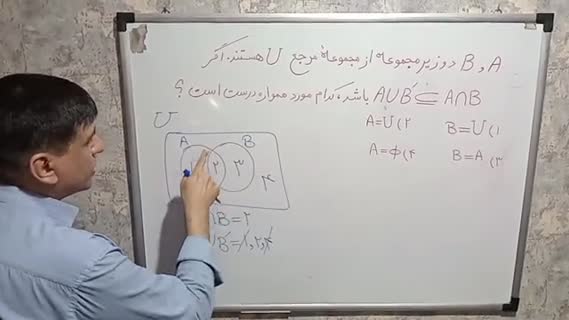 A و B دو زیرمجموعه از مجموعهٔ مرجع U هستند. اگر
A∪B′ ⊆ A∩B باشد، کدام مورد همواره درست است؟
۱) B=U ۲) A=U
۳) B=A ۴) A=ϕ
U
A B
۱ ۲ ۳ ۴
∩B=۲
B′=۱,۲,۴